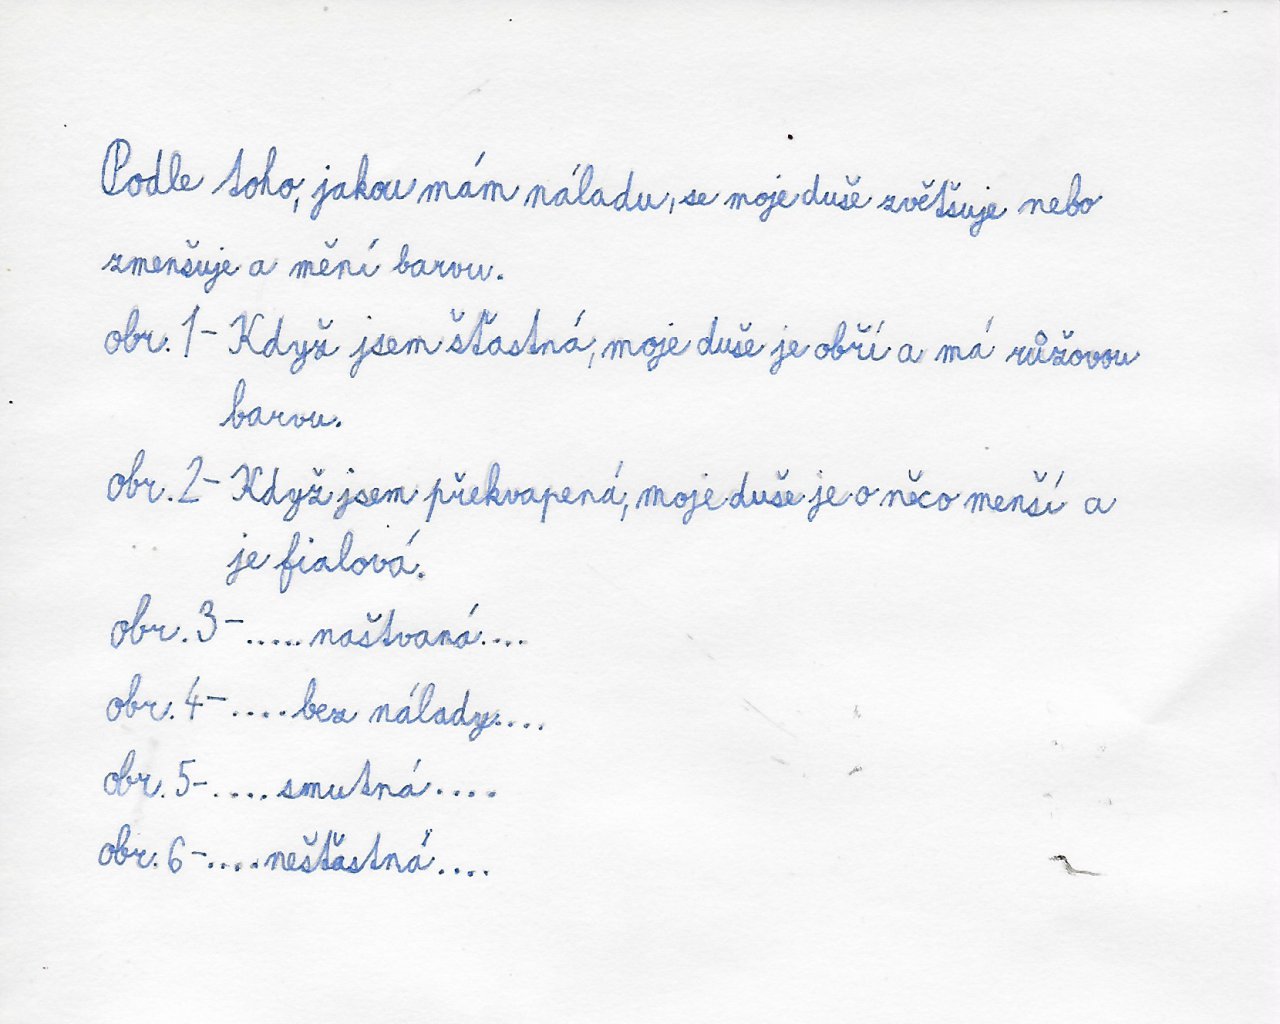 Podle toho, jakou mám náladu, se moje duše zvětšuje nebo
zmenšuje a mění barvu.
obr. 1- Když jsem šťastná, moje duše je obří a má růžovou
barvu.
obr. 2- Když jsem překvapená, moje duše je o něco menší a
je fialová.
obr. 3- ..... naštvaná....
obr. 4- .... bez nálady....
obr. 5- .... smutná ....
obr. 6- .... nešťastná ....